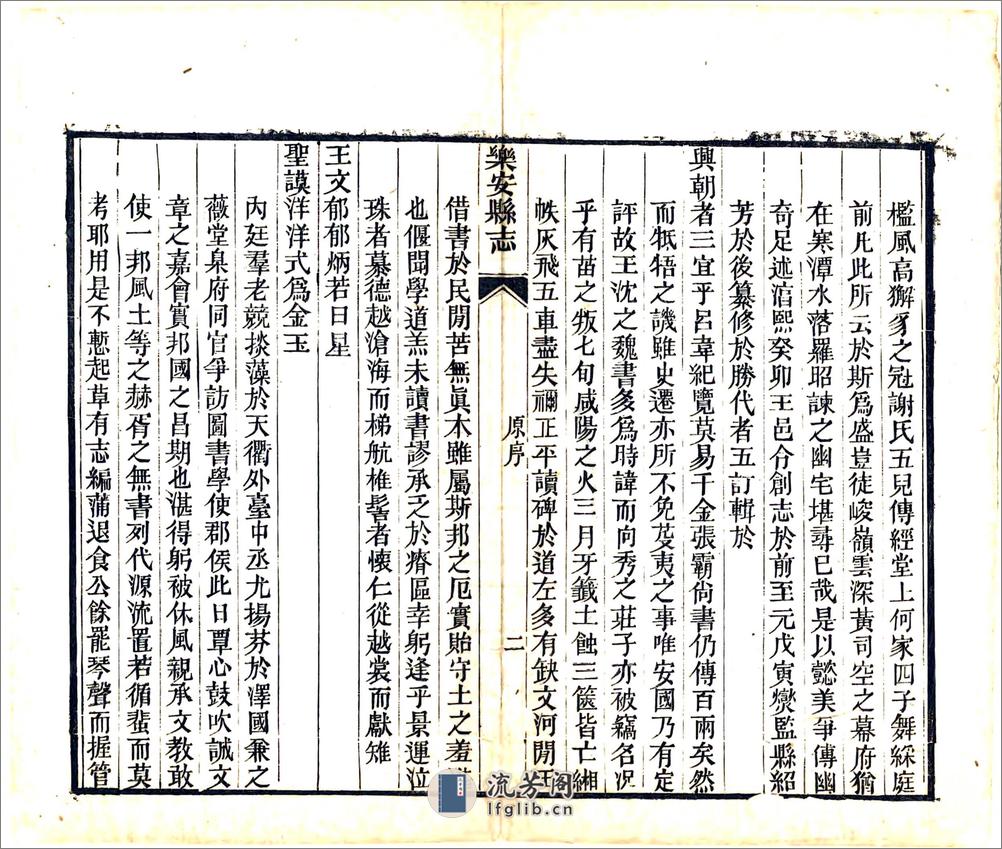 檻風高獬豸之冠謝氏五兒傳經堂上何家四子舞綵庭
前凡此所云於斯爲盛豈徒峻嶺雲深黃司空之幕府猶
在寒潭水落羅昭諫之幽宅堪尋已哉是以懿美爭傳幽
奇足述淳熙癸卯王邑令創志於前至元戊寅爕監縣紹
芳於後纂修於勝代者五訂輯於
興朝者三宜乎呂韋紀覽莫易千金張霸尙書仍傳百兩矣然
而牴牾之譏雖史遷亦所不免芟夷之事唯安國乃有定
評故王沈之魏書多爲時諱而向秀之莊子亦被竊名况
乎有苗之叛七旬咸陽之火三月牙籤土蝕三篋皆亡緗
帙灰飛五車盡失禰正平讀碑於道左多有缺文河閒王
樂安縣志
原序
二
借書於民閒苦無眞本雖屬斯邦之厄實貽守土之羞
也偃聞學道羔未讀書謬承乏於瘠區幸躬逢乎景運泣
珠者慕德越滄海而梯航椎髻者懷仁從越裳而獻雉
王文郁郁炳若日星
聖謨洋洋式爲金玉
內廷羣老競掞藻於天衢外臺中丞尤揚芬於澤國兼之
薇堂臬府同官爭訪圖書學使郡侯此日覃心鼓吹誠文
章之嘉會實邦國之昌期也湛得躬被休風親承文教敢
使一邦風土等之赫胥之無書列代源流置若循蜚而莫
考耶用是不慙起草有志編蒲退食公餘罷琴聲而握管
流芳阁
lfglib.cn